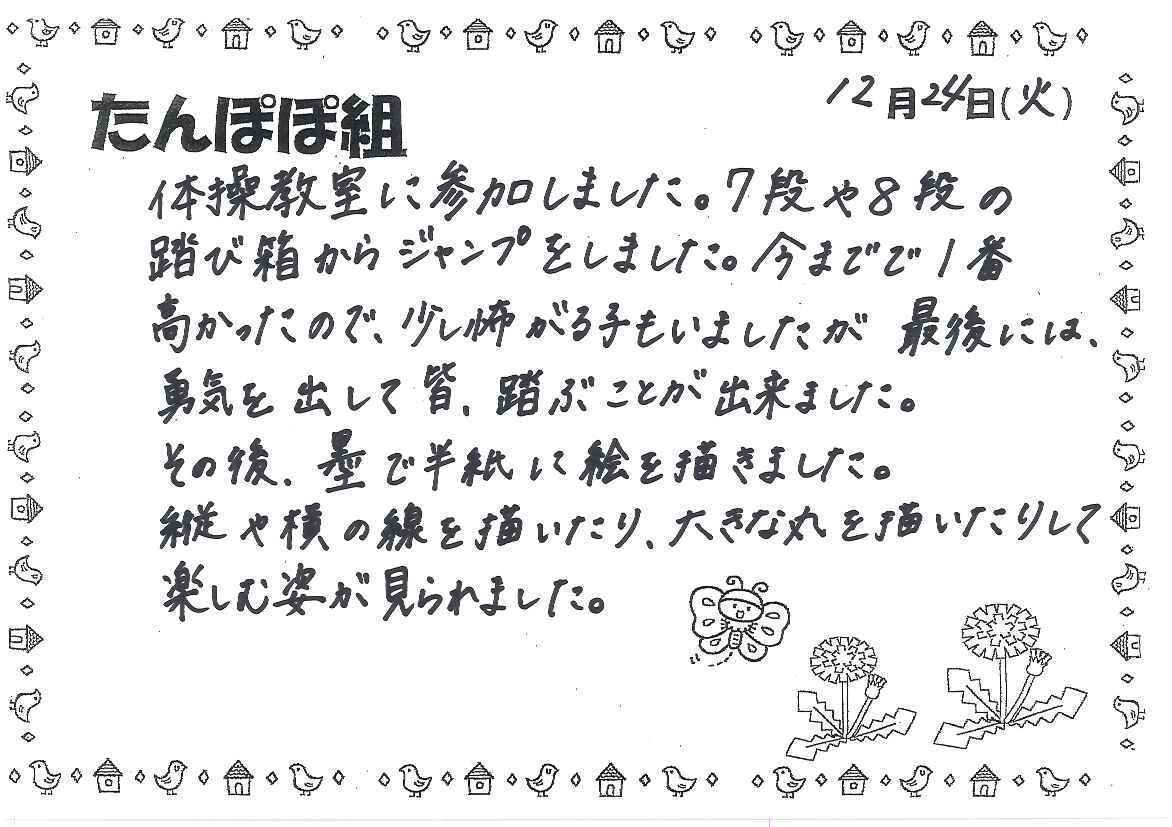 12月24日(火)
たんぽぽ組
体操教室に参加しました。7段や8段の
踏び箱からジャンプをしました。今までで1番
高かったので、少し怖がる子もいましたが 最後には、
勇気を出して皆、踏ぶことが出来ました。
その後、墨で半紙に絵を描きました。
縦や横の線を描いたり、大きな丸を描いたりして
楽しむ姿が見られました。